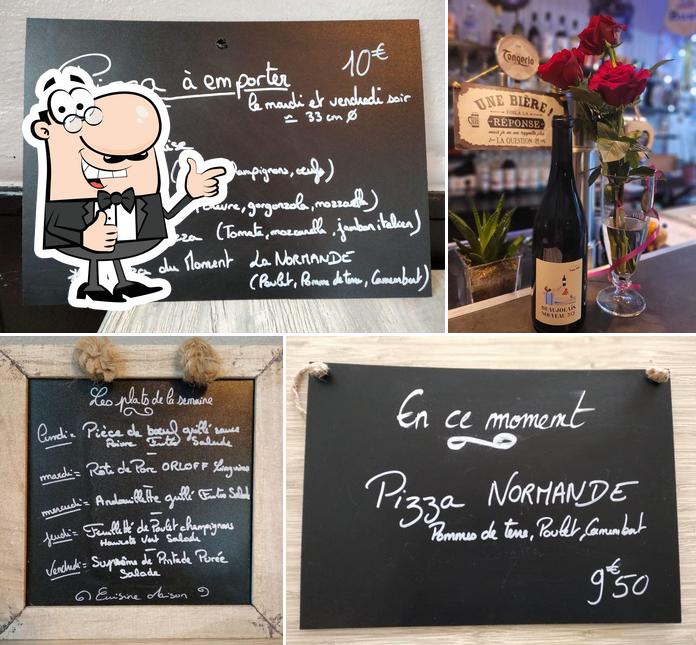 à emporter
10€
le mardi et vendredi soir
≃ 33 cm Ø
champignons, oeufs)
gorgonzola, mozzarella)
(Tomate, mozzarella, jambon italien)
du Moment La NORMANDE
(Poulet, Pomme de terre, Camembert)
Tongerlo
UNE BIÈRE!
VOILA LA
RÉPONSE
mais je ne me rappelle plus
LA QUESTION
BEAUJOLAIS
NOUVEAU
Les plats de la semaine
Lundi = Pièce de boeuf grillé sauce
Poivre Frites Salade
mardi = Roti de Porc ORLOFF Linguines
mercredi = Andouillette grillé Frites Salade
jeudi = Feuilleté de Poulet champignons
Haricots Vert Salade
Vendredi = Suprême de Pintade Purée
Salade
Cuisine Maison
En ce moment
Pizza NORMANDE
Pommes de terre, Poulet, Camembert
9€50